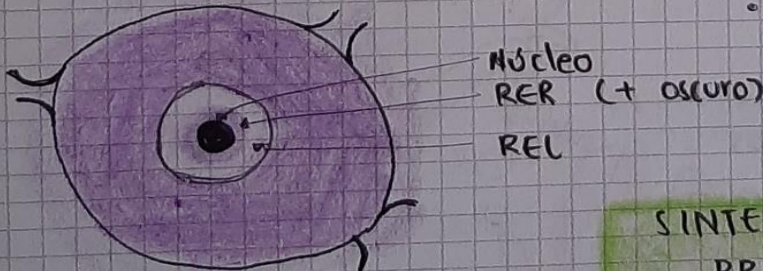 Núcleo
RER (+ oscuro)
REL
SINTE